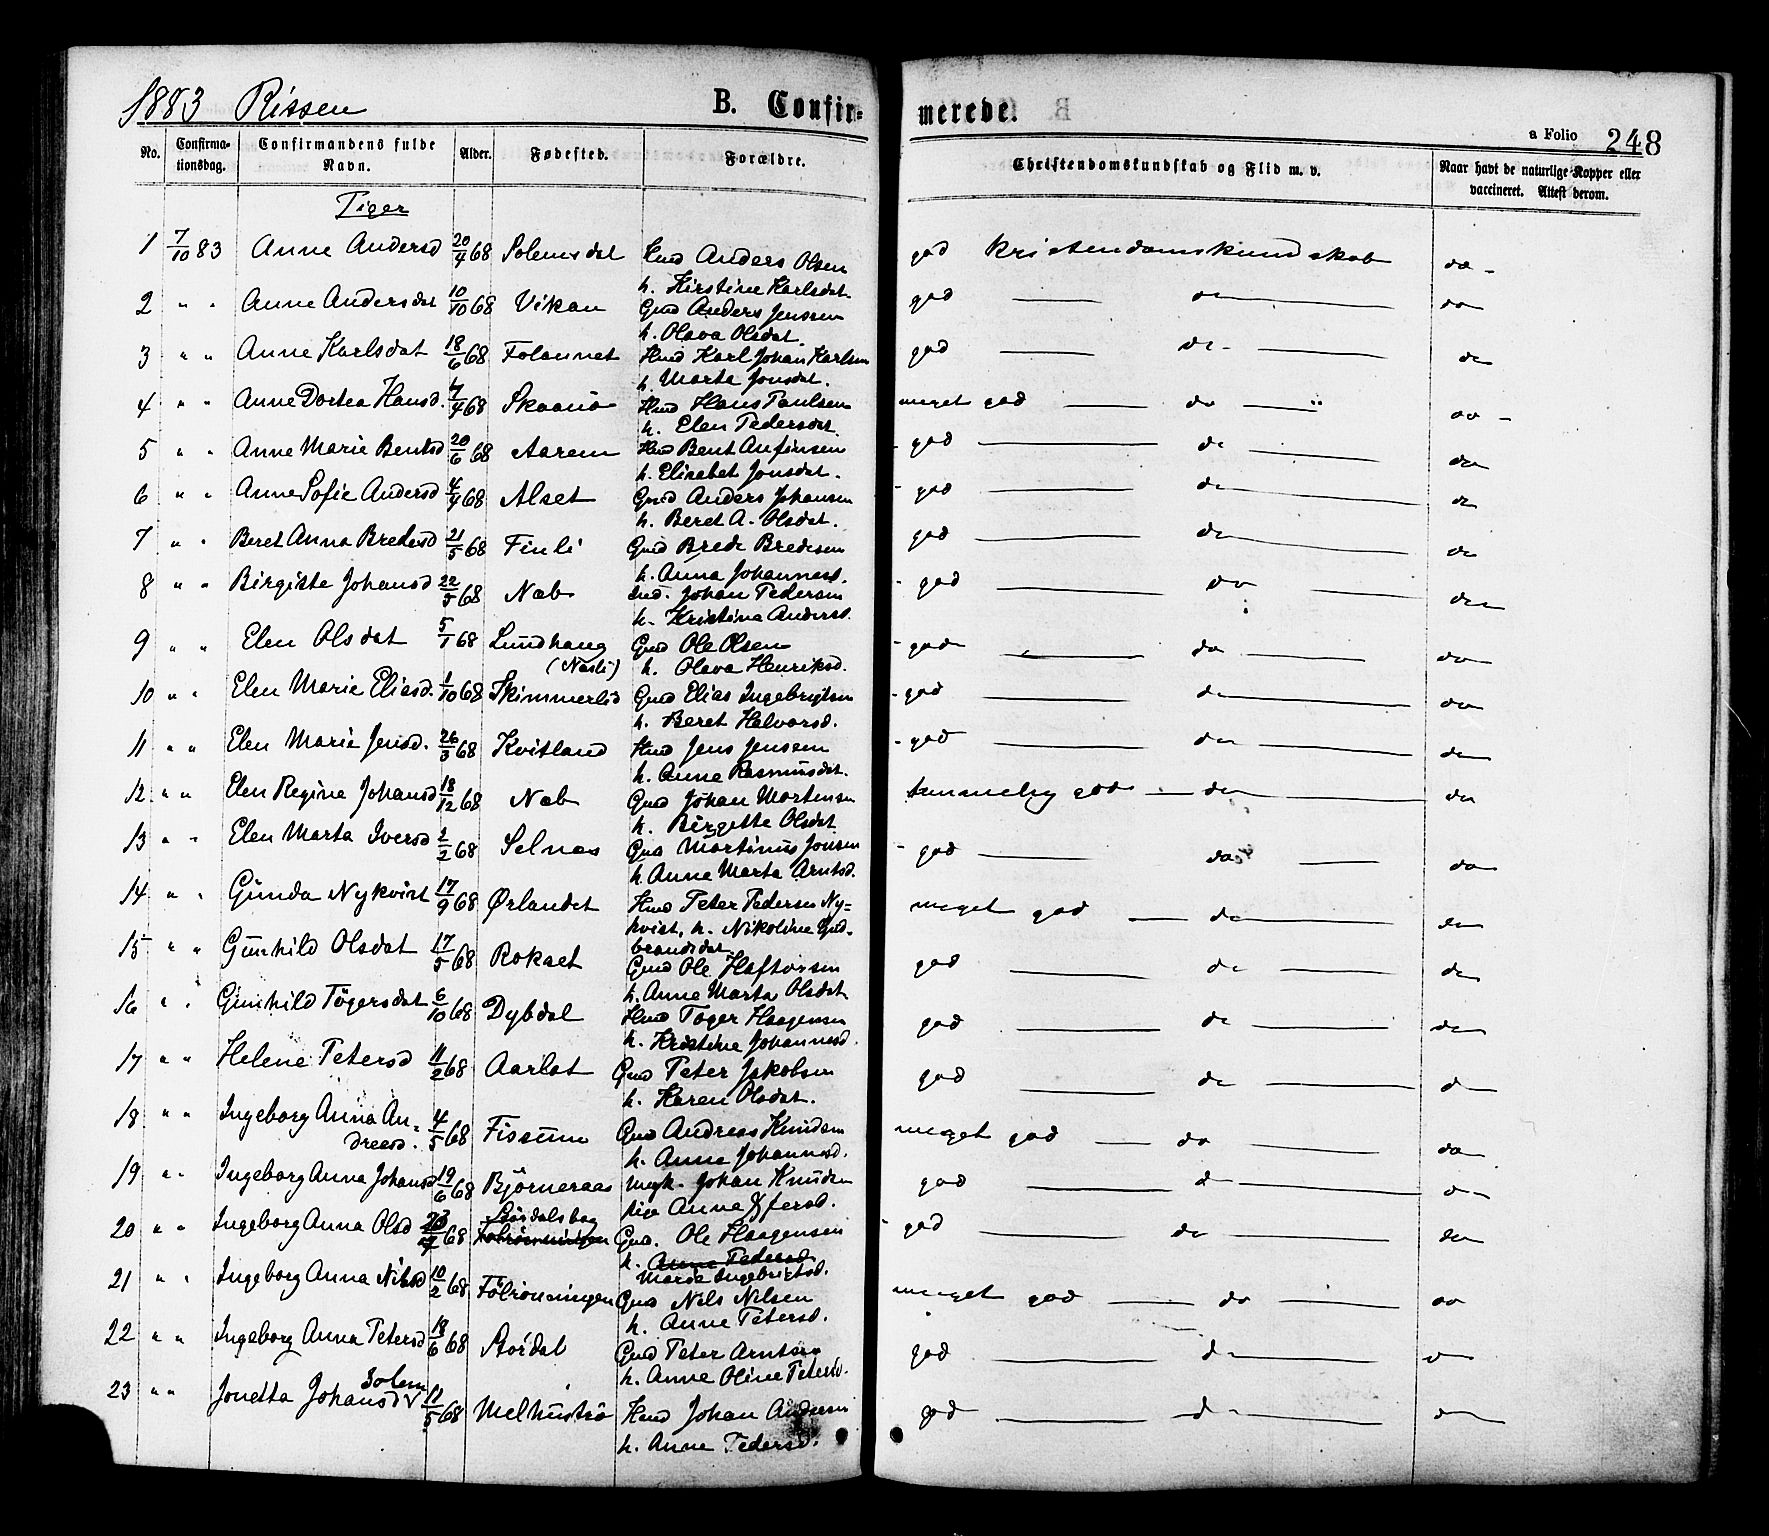 1883 Rissen B. Confir= merede. a Folio 248
No. Confirmationsdag. Confirmandens fulde Navn. Alder. Fødested. Forældre. Christendomskundskab og Flid m. v. Naar havt de naturlige Kopper eller vaccineret. Attest derom.
Piger
1 7/10 83 Anne Andersd 20/4 68 Solemsdal Hmd Anders Olsen god kristendomskundskab
h. Kirstine Karlsdat.
2 " " Anne Andersdat 10/10 68 Vikan Gmd Anders Jenssen god — do —
h. Olava Olsdat.
3 " " Anne Karlsdat 18/6 68 Folaunet Hmd Karl Johan Karlsen god — do — do
h. Marta Jonsdat.
4 " " Anne Dortea Hansd. 7/4 68 Skaanø Hmd Hans Paulsen meget god — do —
h. Elen Pedersdat.
5 " " Anne Marie Bentsd 20/6 68 Aarem Hmd Bent Anfinsen - god — do — do
h. Elisabet Jonsdat.
6 " " Anne Sofie Andersd 4/4 68 Alset Gmd Anders Johansen - god — do — do
h. Beret A. Olsdat.
7 " " Beret Anna Bredesd 21/5 68 Finli Gmd Brede Bredesen god — do — do
h. Anna Johannesd.
8 " " Birgitte Johansd 22/5 68 Næb Ind. Johan Pedersen - god — do — do
h. Kristina Andersd.
9 " " Elen Olsdat 5/1 68 Lundhaug Gmd Ole Olsen - god — do — do
(Nesli) h. Olava Henriksd.
10 " " Elen Marie Eliasd. 1/10 68 Skimmerlid Gmd Elias Ingebrigtsen - god — do — do
h. Beret Halvorsd.
11 " " Elen Marie Jensd. 26/3 68 Kvitland Hmd Jens Jensen - god — do — do
h. Anne Rasmusdat.
12 " " Elen Regine Johansd 18/12 68 Næb Gmd Johan Mortensen temmelig god — do — do
h. Birgitte Olsdat
13 " " Elen Marta Iversd 2/2 68 Selnæs Gmd Martinus Jonsen - god — do — do
h. Anne Marta Arntsd.
14 " " Gunda Nykvist 17/9 68 Ørlandet Hmd Peter Pedersen Ny= meget god — do — do
kvist, h. Nikoline Gud-
brandsdat
15 " " Gunhild Olsdat 17/5 68 Rokset Gmd Ole Haftorsen god — do — do
h. Anne Marta Olsdat
16 " " Gunhild Tøgersdat 6/10 68 Dybdal Hmd Tøger Haagensen god — do — do
h. Kristine Johannesd.
17 " " Helene Petersd 11/2 68 Aarlot Gmd Peter Jakobsen god — do — do
h. Karen Olsdat.
18 " " Ingeborg Anna An- 4/5 68 Fissum Gmd Andreas Knudsen meget god — do — do
dreasd. h. Anne Johannesd.
19 " " Ingeborg Anna Johansd 19/6 68 Bjørneraas Ungk. Johan Knudsen god — do —
Pige Anne
20 " " Ingeborg Anna Olsd 68 Størdalsbag Gmd. Ole Haagensen - god — do — do
Følrønningen h. Anne Pedersd
Marie Ingebrigtsd.
21 " " Ingeborg Anna Nilsd 10/2 68 Følrønningen Gmd Nils Nilsen meget god — do —
h. Anne Petersd.
22 " " Ingeborg Anna Petersd 18/6 68 Størdal Gmd Peter Arntsen god — do —
h. Anne Oline Petersd.
Solem
23 " " Jonetta Johansd V 11/5 68 Melhustrø Hmd Johan Andersen god — do —
h. Anne Pedersd.